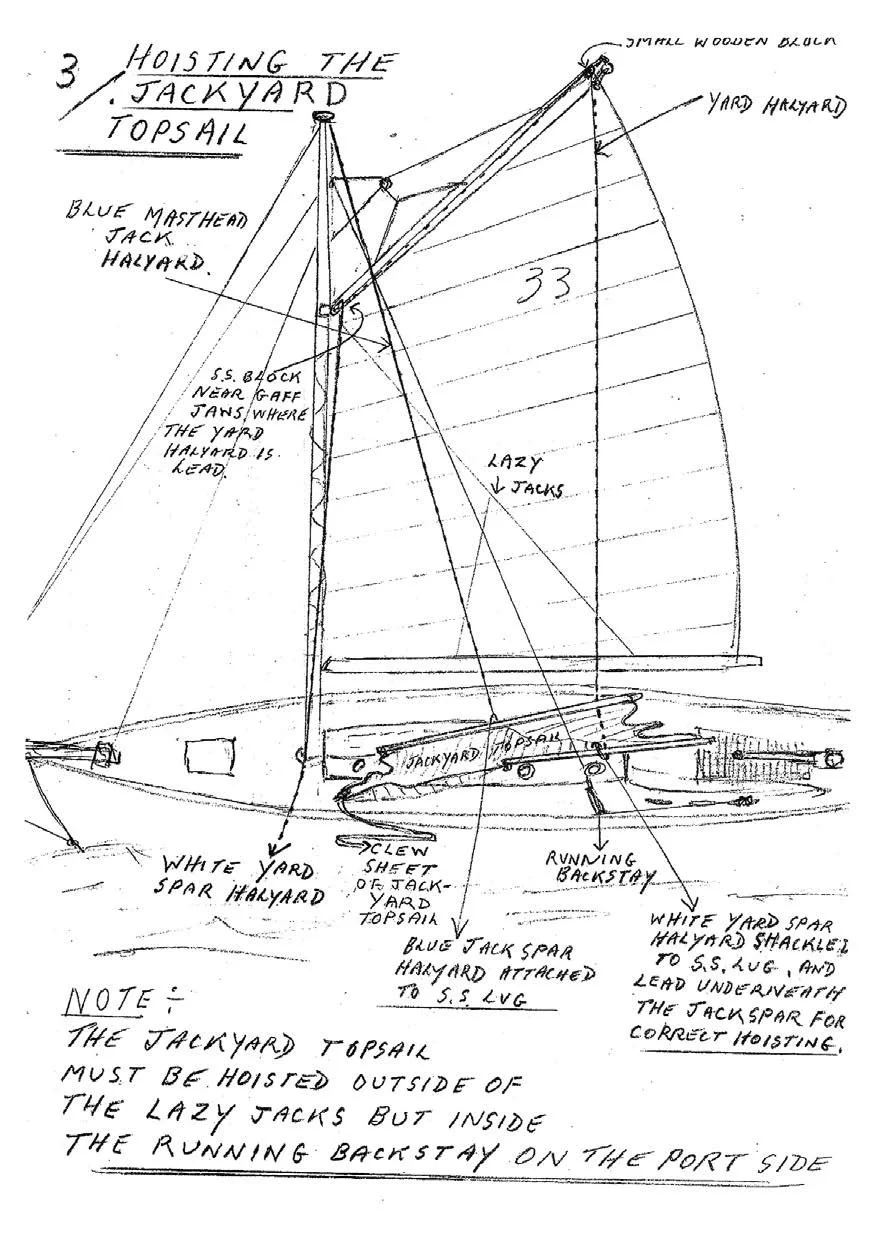 3/. HOISTING THE
JACKYARD
TOPSAIL
SMALL WOODEN BLOCK
YARD HALYARD
BLUE MASTHEAD
JACK
HALYARD.
33
S.S. BLOCK
NEAR GAFF
JAWS WHERE
THE YARD
HALYARD IS
LEAD.
LAZY
JACKS
JACKYARD TOPSAIL
WHITE YARD
SPAR HALYARD
CLEW
SHEET
OF JACK-
YARD
TOPSAIL
BLUE JACK SPAR
HALYARD ATTACHED
TO S.S. LUG
RUNNING
BACKSTAY
WHITE YARD SPAR
HALYARD SHACKLED
TO S.S. LUG, AND
LEAD UNDERNEATH
THE JACKSPAR FOR
CORRECT HOISTING.
NOTE ÷
THE JACKYARD TOPSAIL
MUST BE HOISTED OUTSIDE OF
THE LAZY JACKS BUT INSIDE
THE RUNNING BACKSTAY ON THE PORT SIDE